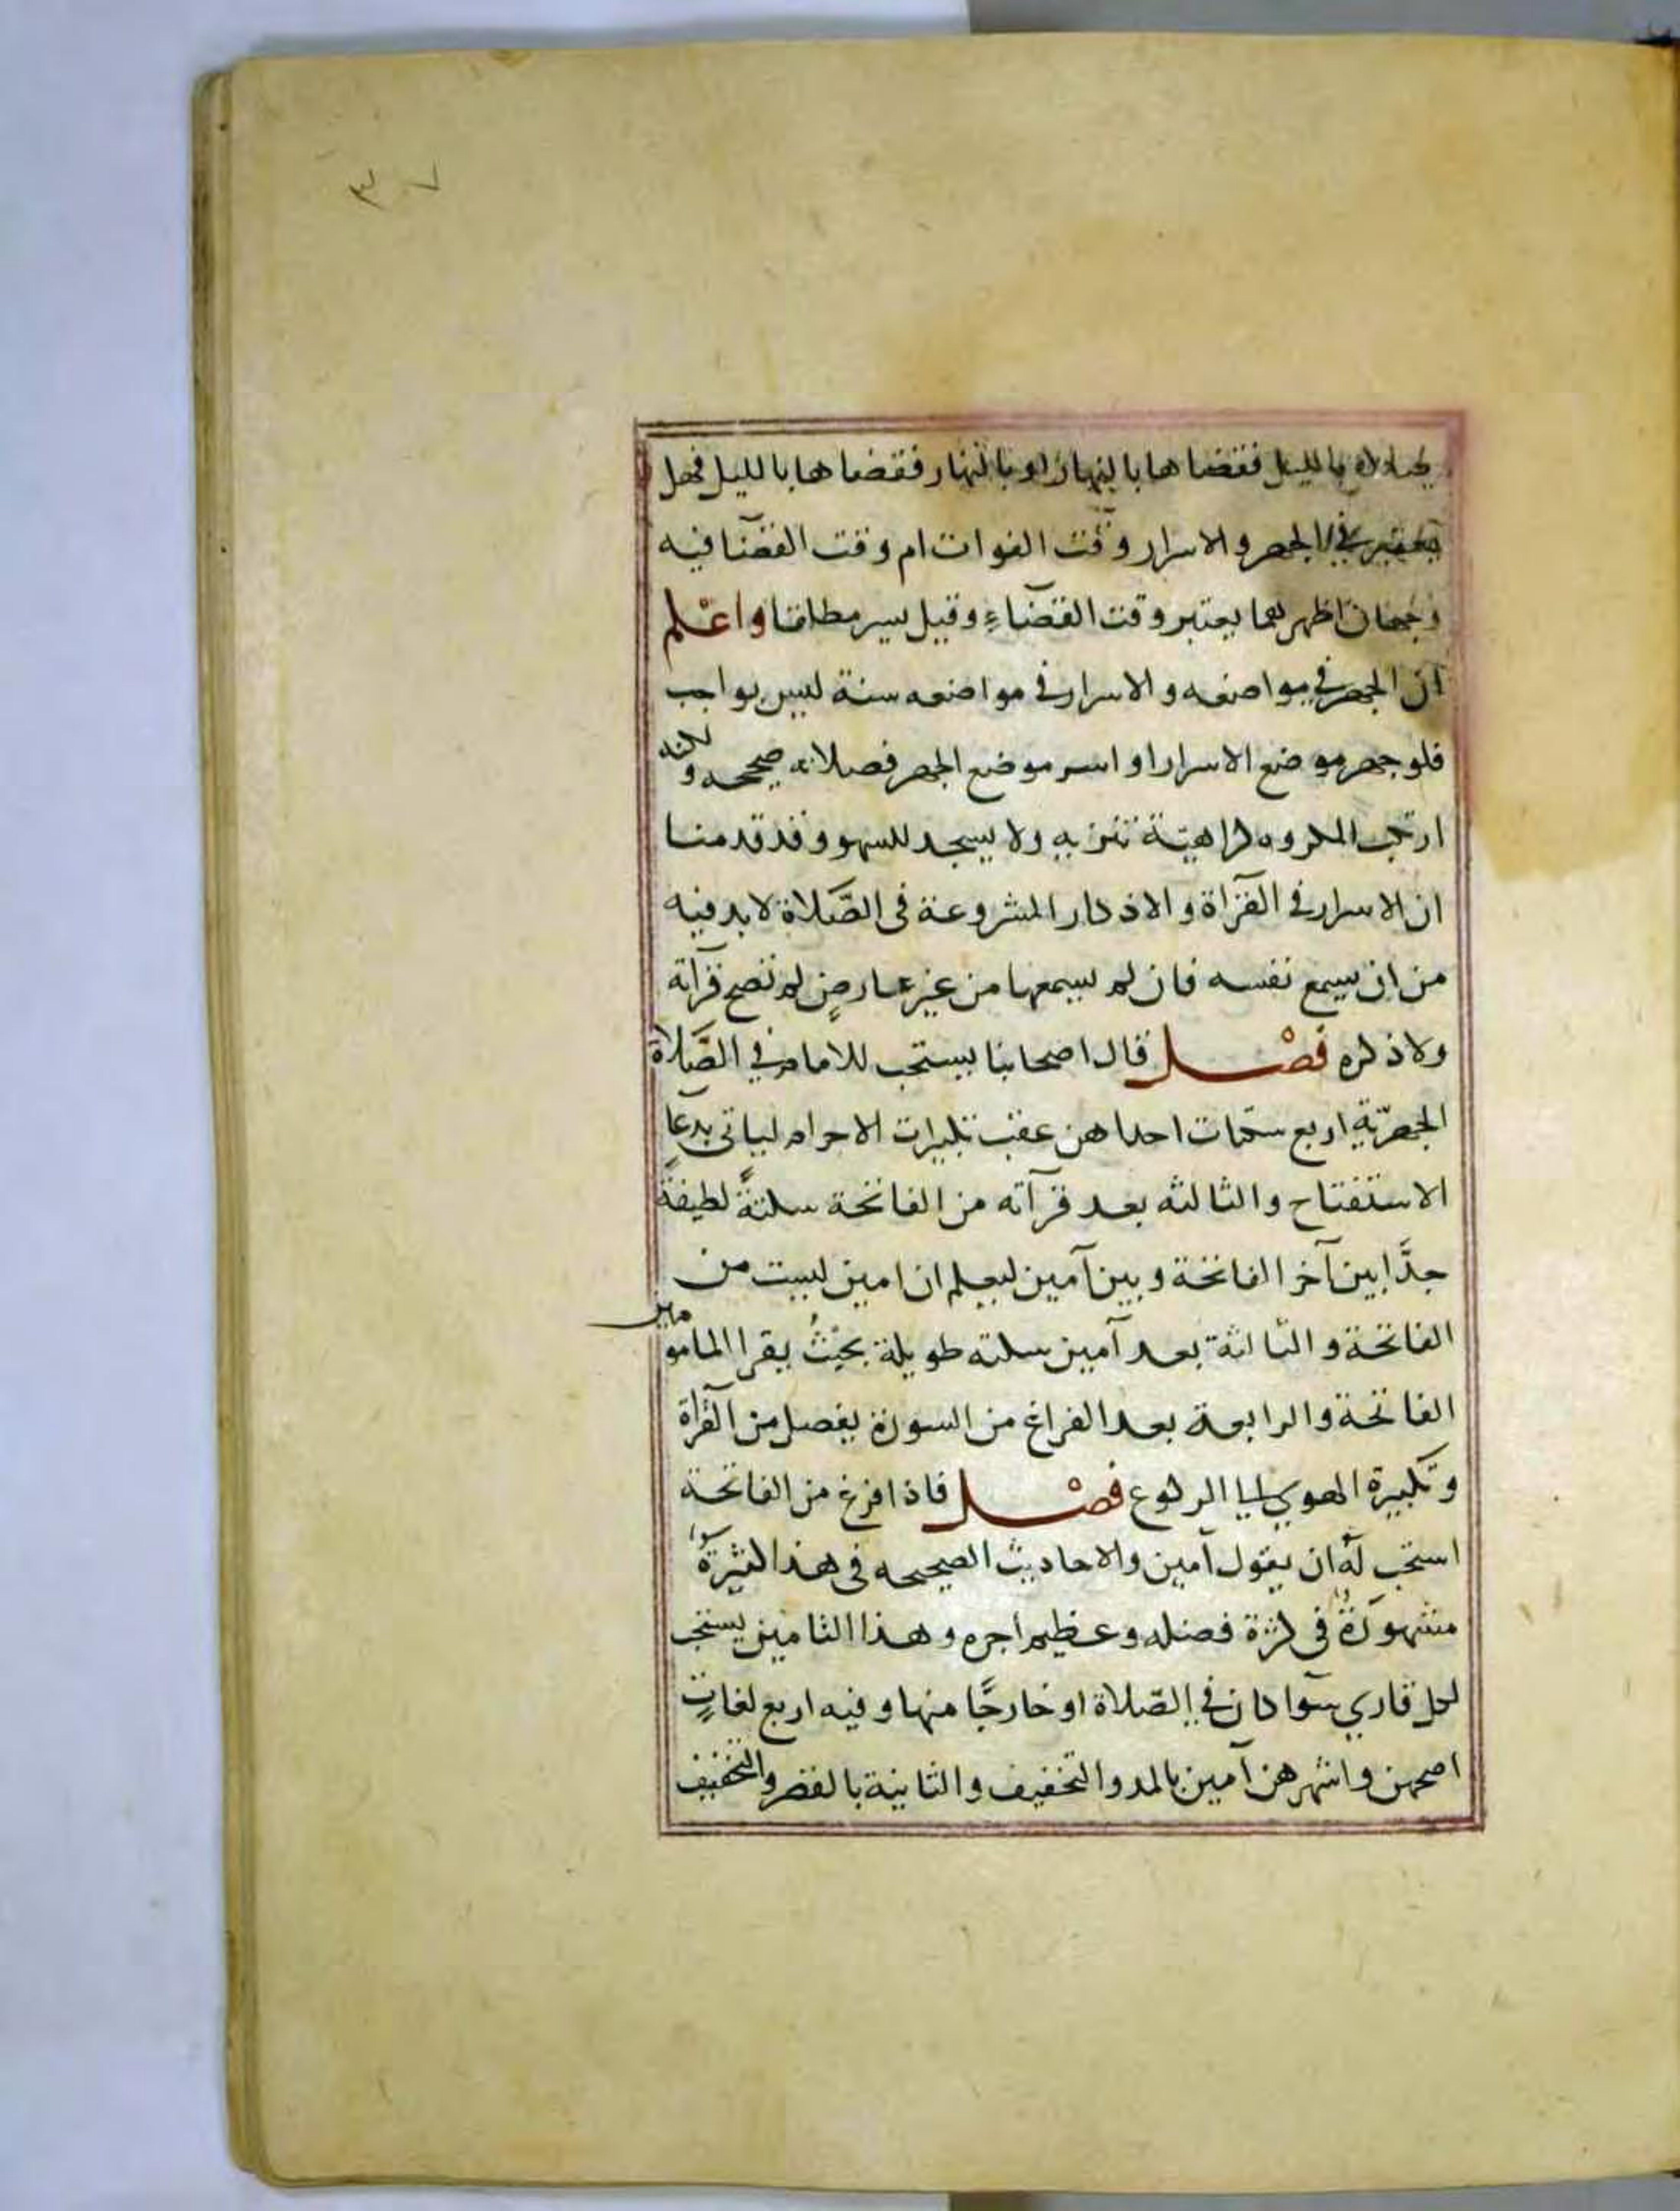 ٣٠٧
صلاة بالليل فقضاها بالنهار او بالنهار فقضاها بالليل فهل
يعتبر في الجهر والاسرار وقت الفوات ام وقت القضآ فيه
وجهان اظهرهما يعتبر وقت القضآء وقيل يسر مطلقا واعْلم
ان الجهر في مواضعه والاسرار في مواضعه سنة ليس بواجب
فلو جهر موضع الاسرار او اسر موضع الجهر فصلاته صحيحه ولكنه
ارتكب المكروه كراهيّة تنزيه ولا يسجد للسهو وقد قدمنا
ان الاسرار في القرآة والاذكار المشروعة فى الصَّلاة لابد فيه
من ان يسمع نفسه فان لم يسمعها من غير عارضٍ لم تصح قرآته
ولا ذكره فصْل قال اصحابنا يستحب للامام في الصَّلاة
الجهريّة اربع سكتات احداهن عقب تكبيرات الاحرام لياتى بدعآ
الاستفتاح والثالثه بعد قرآته من الفاتحة سكتةً لطيفةً
جدًّا بين آخر الفاتحة وبين آمين ليعلم ان امين ليست من
الفاتحة والثالثة بعد آمين سكته طويلة بحيْثُ يقرا المامومين
الفاتحة والرابعة بعد الفراغ من السورة يفصل من القرآة
وتكبيرة الهوي الى الركوع فصْل فاذا فرغ من الفاتحة
استحب لهُ ان يقول آمين والاحاديث الصحيحه فى هذا كثيرةٌ
مشهورةٌ فى كثرة فضله وعظيم اجره وهذا التامين يستحب
لكل قاري سوآ كان في الصّلاة او خارجًا منها وفيه اربع لغاتٍ
اصحهن واشهرهن آمين بالمد والتخفيف والثانية بالقصر والتخفيف